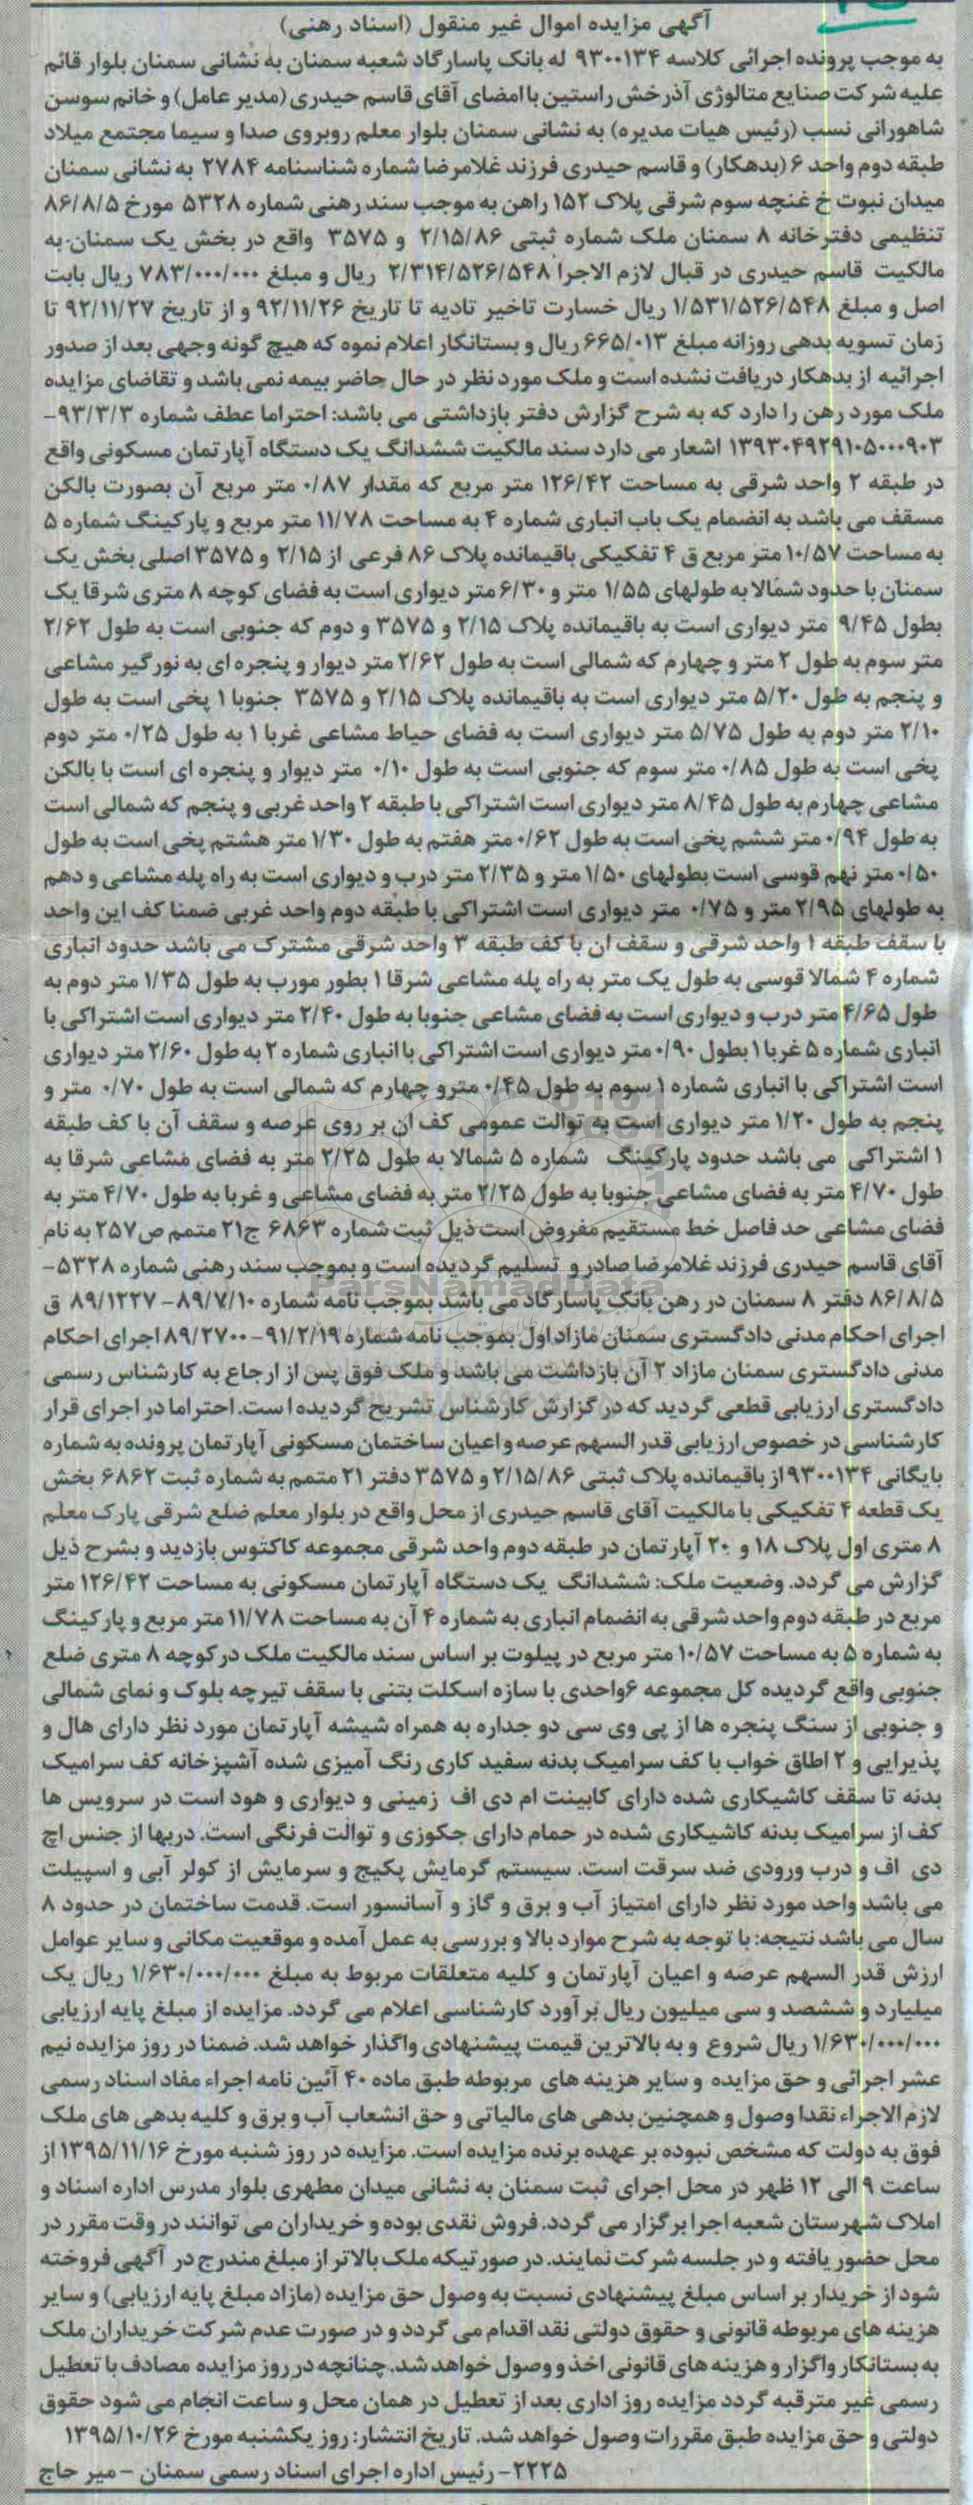 آگهی مزایده اموال غیر منقول (اسناد رهنی)
به موجب پرونده اجرائی کلاسه ۹۳۰۰۱۳۴ له بانک پاسارگاد شعبه سمنان به نشانی سمنان بلوار قائم
علیه شرکت صنایع متالوژی آذرخش راستین با امضای آقای قاسم حیدری (مدیر عامل) و خانم سوسن
شاهورانی نسب (رئیس هیات مدیره) به نشانی سمنان بلوار معلم روبروی صدا و سیما مجتمع میلاد
طبقه دوم واحد ۶ (بدهکار) و قاسم حیدری فرزند غلامرضا شماره شناسنامه ۲۷۸۴ به نشانی سمنان
میدان نبوت خ غنچه سوم شرقی پلاک ۱۵۲ راهن به موجب سند رهنی شماره ۵۳۲۸ مورخ ۸۶/۸/۵
تنظیمی دفترخانه ۸ سمنان ملک شماره ثبتی ۲/۱۵/۸۶ و ۳۵۷۵ واقع در بخش یک سمنان به
مالکیت قاسم حیدری در قبال لازم الاجرا ۲/۳۱۴/۵۲۶/۵۴۸ ریال و مبلغ ۷۸۳/۰۰۰/۰۰۰ ریال بابت
اصل و مبلغ ۱/۵۳۱/۵۲۶/۵۴۸ ریال خسارت تاخیر تادیه تا تاریخ ۹۲/۱۱/۲۶ و از تاریخ ۹۲/۱۱/۲۷ تا
زمان تسویه بدهی روزانه مبلغ ۶۶۵/۰۱۳ ریال و بستانکار اعلام نموه که هیچ گونه وجهی بعد از صدور
اجرائیه از بدهکار دریافت نشده است و ملک مورد نظر در حال حاضر بیمه نمی باشد و تقاضای مزایده
ملک مورد رهن را دارد که به شرح گزارش دفتر بازداشتی می باشد: احتراما عطف شماره ۹۳/۳/۳-
۱۳۹۳۰۴۹۲۹۱۰۵۰۰۰۹۰۳ اشعار می دارد سند مالکیت ششدانگ یک دستگاه آپارتمان مسکونی واقع
در طبقه ۲ واحد شرقی به مساحت ۱۲۶/۴۲ متر مربع که مقدار ۰/۸۷ متر مربع آن بصورت بالکن
مسقف می باشد به انضمام یک باب انباری شماره ۴ به مساحت ۱۱/۷۸ متر مربع و پارکینگ شماره ۵
به مساحت ۱۰/۵۷ متر مربع ق ۴ تفکیکی باقیمانده پلاک ۸۶ فرعی از ۲/۱۵ و ۳۵۷۵ اصلی بخش یک
سمنان با حدود شمالا به طولهای ۱/۵۵ متر و ۶/۳۰ متر دیواری است به فضای کوچه ۸ متری شرقا یک
بطول ۹/۴۵ متر دیواری است به باقیمانده پلاک ۲/۱۵ و ۳۵۷۵ و دوم که جنوبی است به طول ۲/۶۲
متر سوم به طول ۲ متر و چهارم که شمالی است به طول ۲/۶۲ متر دیوار و پنجره ای به نورگیر مشاعی
و پنجم به طول ۵/۲۰ متر دیواری است به باقیمانده پلاک ۲/۱۵ و ۳۵۷۵ جنوبا ۱ پخی است به طول
۲/۱۰ متر دوم به طول ۵/۷۵ متر دیواری است به فضای حیاط مشاعی غربا ۱ به طول ۰/۲۵ متر دوم
پخی است به طول ۰/۸۵ متر سوم که جنوبی است به طول ۰/۱۰ متر دیوار و پنجره ای است با بالکن
مشاعی چهارم به طول ۸/۴۵ متر دیواری است اشتراکی با طبقه ۲ واحد غربی و پنجم که شمالی است
به طول ۰/۹۴ متر ششم پخی است به طول ۰/۶۲ متر هفتم به طول ۱/۳۰ متر هشتم پخی است به طول
۰/۵۰ متر نهم قوسی است بطولهای ۱/۵۰ متر و ۲/۳۵ متر درب و دیواری است به راه پله مشاعی و دهم
به طولهای ۲/۹۵ متر و ۰/۷۵ متر دیواری است اشتراکی با طبقه دوم واحد غربی ضمنا کف این واحد
با سقف طبقه ۱ واحد شرقی و سقف ان با کف طبقه ۳ واحد شرقی مشترک می باشد حدود انباری
شماره ۴ شمالا قوسی به طول یک متر به راه پله مشاعی شرقا ۱ بطور مورب به طول ۱/۳۵ متر دوم به
طول ۴/۶۵ متر درب و دیواری است به فضای مشاعی جنوبا به طول ۲/۴۰ متر دیواری است اشتراکی با
انباری شماره ۵ غربا ۱ بطول ۰/۹۰ متر دیواری است اشتراکی با انباری شماره ۲ به طول ۲/۶۰ متر دیواری
است اشتراکی با انباری شماره ۱ سوم به طول ۰/۴۵ مترو چهارم که شمالی است به طول ۰/۷۰ متر و
پنجم به طول ۱/۲۰ متر دیواری است به توالت عمومی کف ان بر روی عرصه و سقف آن با کف طبقه
۱ اشتراکی می باشد حدود پارکینگ شماره ۵ شمالا به طول ۲/۲۵ متر به فضای مشاعی شرقا به
طول ۴/۷۰ متر به فضای مشاعی جنوبا به طول ۲/۲۵ متر به فضای مشاعی و غربا به طول ۴/۷۰ متر به
فضای مشاعی حد فاصل خط مستقیم مفروض است ذیل ثبت شماره ۶۸۶۳ ج۲۱ متمم ص۲۵۷ به نام
آقای قاسم حیدری فرزند غلامرضا صادر و تسلیم گردیده است و بموجب سند رهنی شماره ۵۳۲۸-
۸۶/۸/۵ دفتر ۸ سمنان در رهن بانک پاسارگاد می باشد بموجب نامه شماره ۸۹/۷/۱۰-۸۹/۱۲۲۷ ق
اجرای احکام مدنی دادگستری سمنان مازاد اول بموجب نامه شماره ۹۱/۲/۱۹-۸۹/۲۷۰۰ اجرای احکام
مدنی دادگستری سمنان مازاد ۲ آن بازداشت می باشد و ملک فوق پس از ارجاع به کارشناس رسمی
دادگستری ارزیابی قطعی گردید که در گزارش کارشناس تشریح گردیده است. احتراما در اجرای قرار
کارشناسی در خصوص ارزیابی قدر السهم عرصه و اعیان ساختمان مسکونی آپارتمان پرونده به شماره
بایگانی ۹۳۰۰۱۳۴ از باقیمانده پلاک ثبتی ۲/۱۵/۸۶ و ۳۵۷۵ دفتر ۲۱ متمم به شماره ثبت ۶۸۶۲ بخش
یک قطعه ۴ تفکیکی با مالکیت آقای قاسم حیدری از محل واقع در بلوار معلم ضلع شرقی پارک معلم
۸ متری اول پلاک ۱۸ و ۲۰ آپارتمان در طبقه دوم واحد شرقی مجموعه کاکتوس بازدید و بشرح ذیل
گزارش می گردد. وضعیت ملک: ششدانگ یک دستگاه آپارتمان مسکونی به مساحت ۱۲۶/۴۲ متر
مربع در طبقه دوم واحد شرقی به انضمام انباری به شماره ۴ آن به مساحت ۱۱/۷۸ متر مربع و پارکینگ
به شماره ۵ به مساحت ۱۰/۵۷ متر مربع در پیلوت بر اساس سند مالکیت ملک در کوچه ۸ متری ضلع
جنوبی واقع گردیده کل مجموعه ۶واحدی با سازه اسکلت بتنی با سقف تیرچه بلوک و نمای شمالی
و جنوبی از سنگ پنجره ها از پی وی سی دو جداره به همراه شیشه آپارتمان مورد نظر دارای هال و
پذیرایی و ۲ اطاق خواب با کف سرامیک بدنه سفید کاری رنگ آمیزی شده آشپزخانه کف سرامیک
بدنه تا سقف کاشیکاری شده دارای کابینت ام دی اف زمینی و دیواری و هود است در سرویس ها
کف از سرامیک بدنه کاشیکاری شده در حمام دارای جکوزی و توالت فرنگی است. دربها از جنس اچ
دی اف و درب ورودی ضد سرقت است. سیستم گرمایش پکیج و سرمایش از کولر آبی و اسپیلت
می باشد واحد مورد نظر دارای امتیاز آب و برق و گاز و آسانسور است. قدمت ساختمان در حدود ۸
سال می باشد نتیجه: با توجه به شرح موارد بالا و بررسی به عمل آمده و موقعیت مکانی و سایر عوامل
ارزش قدر السهم عرصه و اعیان آپارتمان و کلیه متعلقات مربوط به مبلغ ۱/۶۳۰/۰۰۰/۰۰۰ ریال یک
میلیارد و ششصد و سی میلیون ریال برآورد کارشناسی اعلام می گردد. مزایده از مبلغ پایه ارزیابی
۱/۶۳۰/۰۰۰/۰۰۰ ریال شروع و به بالاترین قیمت پیشنهادی واگذار خواهد شد. ضمنا در روز مزایده نیم
عشر اجرائی و حق مزایده و سایر هزینه های مربوطه طبق ماده ۴۰ آئین نامه اجراء مفاد اسناد رسمی
لازم الاجراء نقدا وصول و همچنین بدهی های مالیاتی و حق انشعاب آب و برق و کلیه بدهی های ملک
فوق به دولت که مشخص نبوده بر عهده برنده مزایده است. مزایده در روز شنبه مورخ ۱۳۹۵/۱۱/۱۶ از
ساعت ۹ الی ۱۲ ظهر در محل اجرای ثبت سمنان به نشانی میدان مطهری بلوار مدرس اداره اسناد و
املاک شهرستان شعبه اجرا برگزار می گردد. فروش نقدی بوده و خریداران می توانند در وقت مقرر در
محل حضور یافته و در جلسه شرکت نمایند. در صورتیکه ملک بالاتر از مبلغ مندرج در آگهی فروخته
شود از خریدار بر اساس مبلغ پیشنهادی نسبت به وصول حق مزایده (مازاد مبلغ پایه ارزیابی) و سایر
هزینه های مربوطه قانونی و حقوق دولتی نقد اقدام می گردد و در صورت عدم شرکت خریداران ملک
به بستانکار واگزار و هزینه های قانونی اخذ و وصول خواهد شد. چنانچه در روز مزایده مصادف با تعطیل
رسمی غیر مترقبه گردد مزایده روز اداری بعد از تعطیل در همان محل و ساعت انجام می شود حقوق
دولتی و حق مزایده طبق مقررات وصول خواهد شد. تاریخ انتشار: روز یکشنبه مورخ ۱۳۹۵/۱۰/۲۶
۲۲۲۵- رئیس اداره اجرای اسناد رسمی سمنان - میر حاج